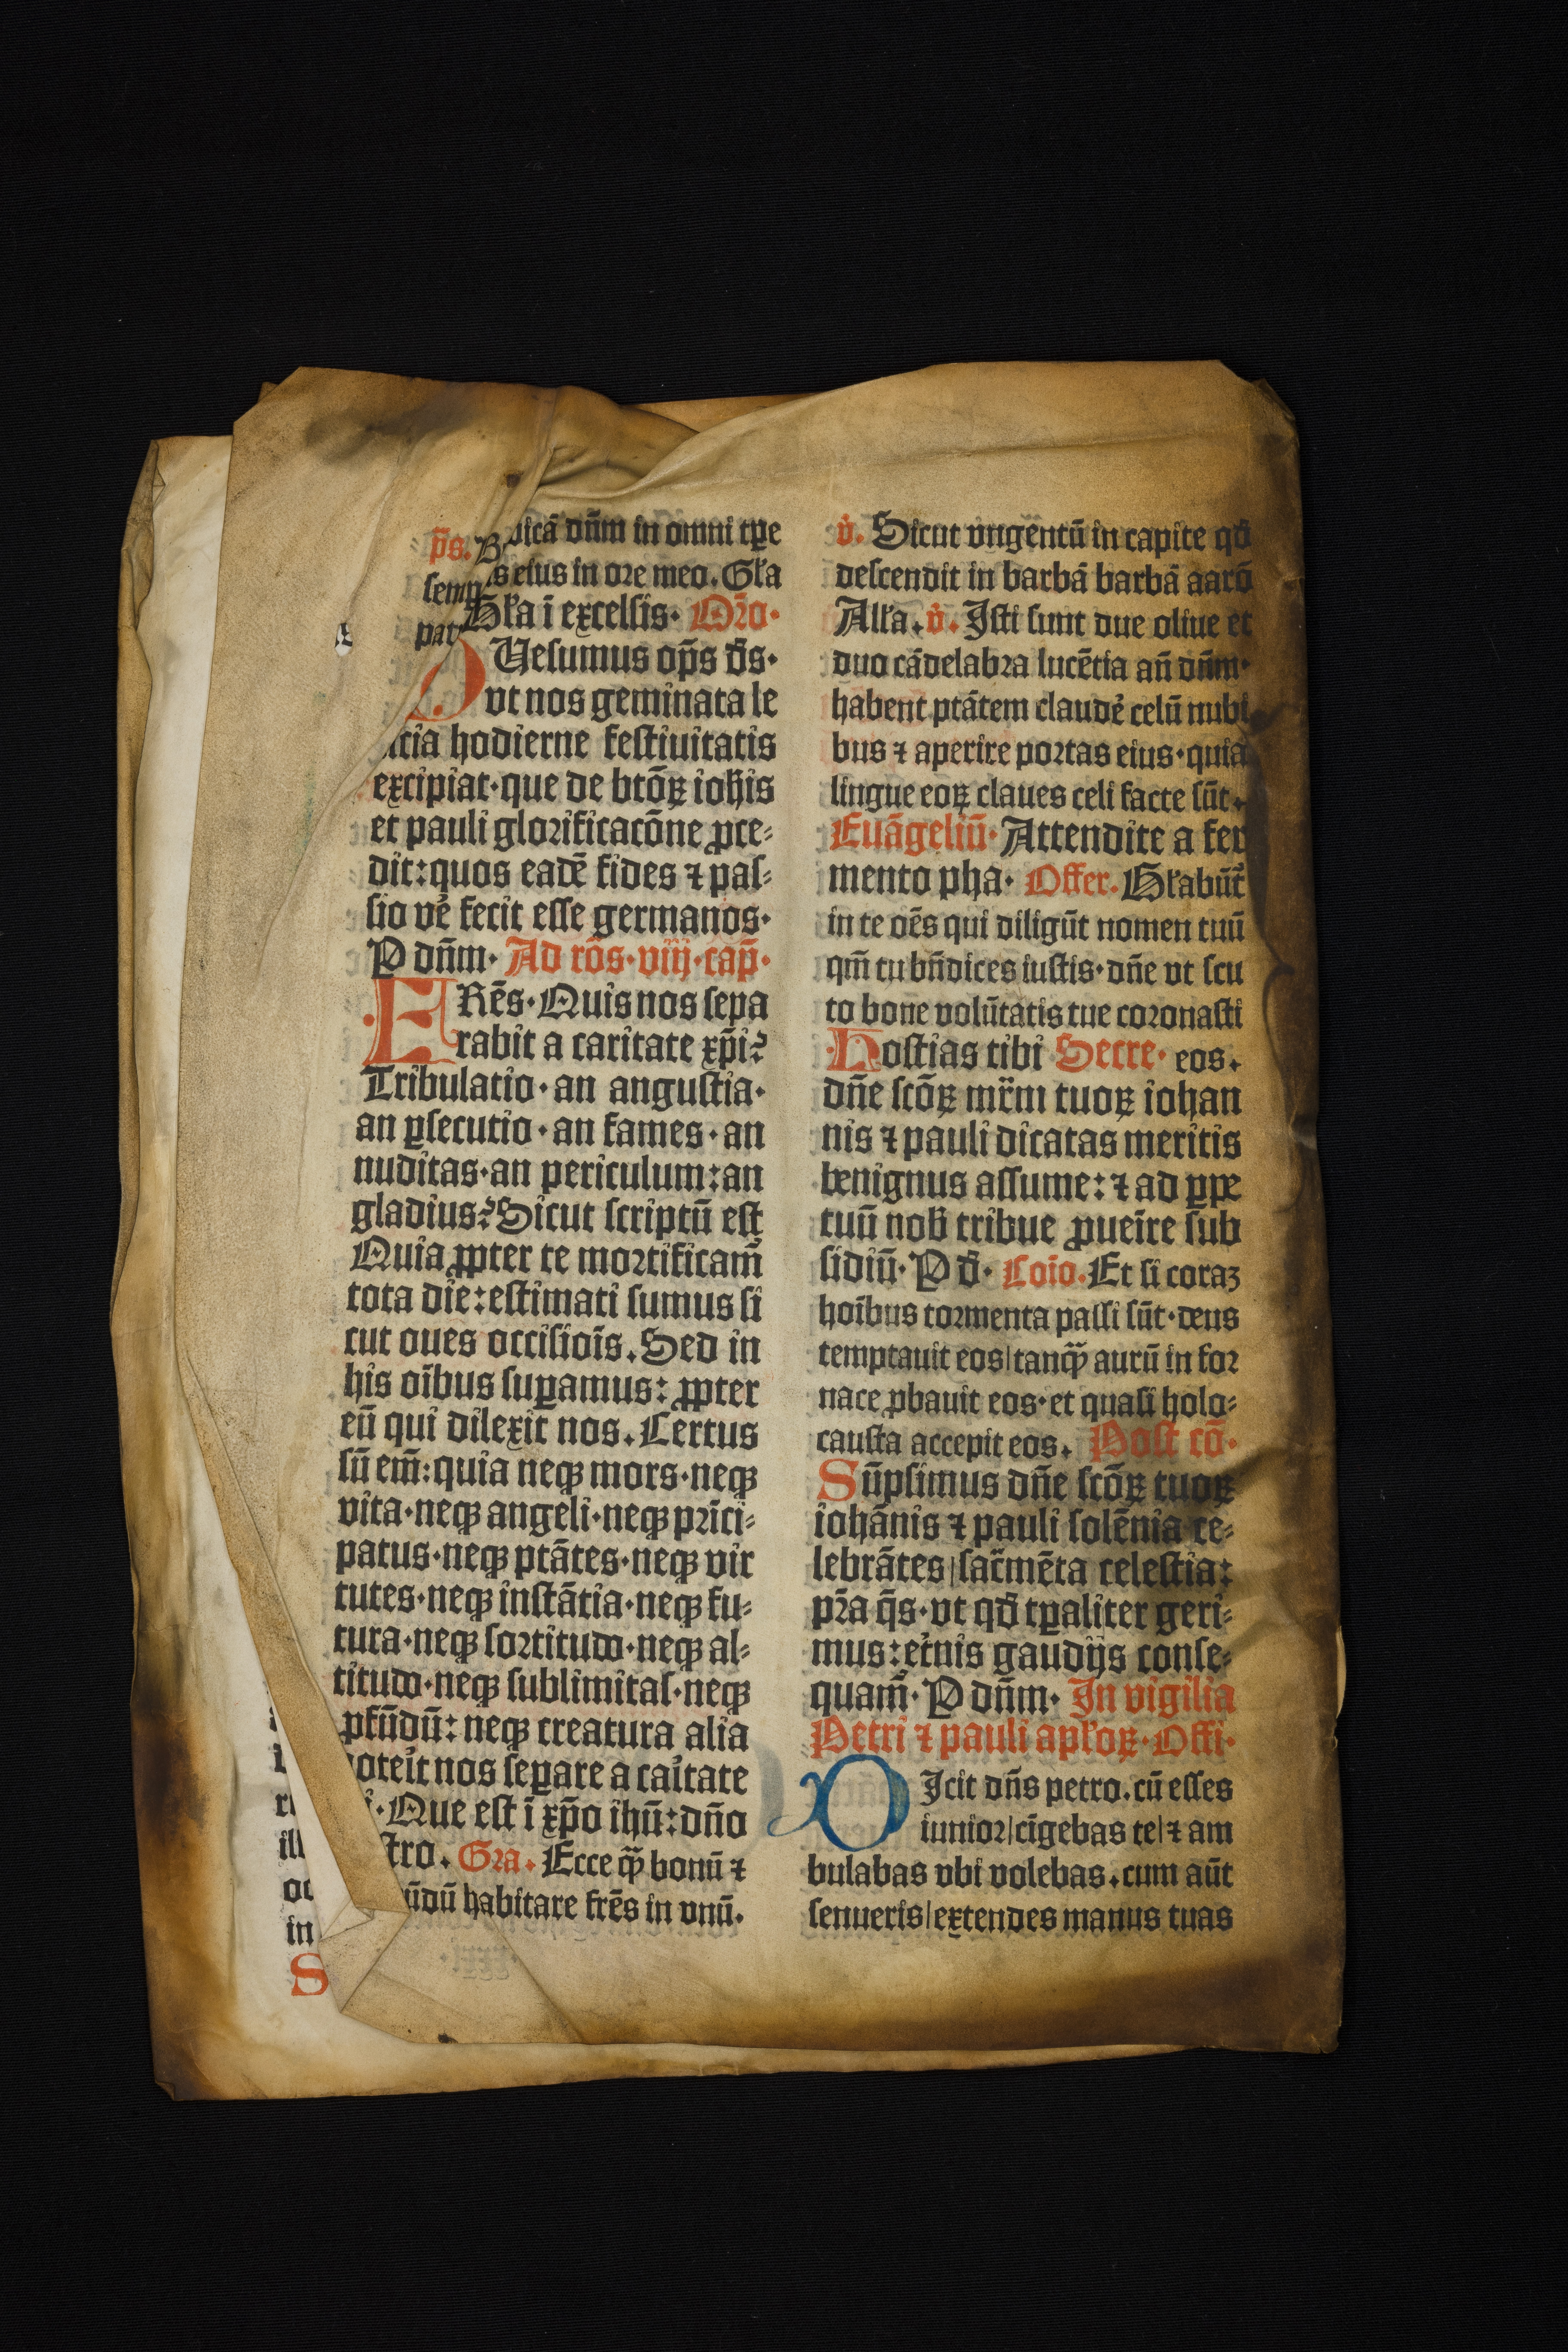 p̄s. B dicā dn̄m in omni tꝑe
semp s eius in ore meo. Gƚa
pat Gƚa ī excelsis. Or̄o.
QUesumus op̄s ds̄.
vt nos geminata le
titia hodierne festiuitatis
excipiat·que de btōꝝ ioħis
et pauli glorificacōne ꝓce⸗
dit:quos eadē fides ⁊ pas⸗
sio ve᷑ fecit esse germanos·
P dn̄m· Ad rōs·viij·cap̄·
FRēs·Quis nos sepa
rabit a caritate xp̄i?
Tribulatio·an angustia·
an ꝑsecutio·an fames·an
nuditas·an periculum:an
gladius? Sicut scriptū est
Quia ꝓpter te mortificam̄
tota die:estimati sumus si
cut oues occisiōis. Sed in
his oībus suꝑamus: ꝓpter
eū qui dilexit nos. Certus
sū em̄:quia neqꝫ mors·neqꝫ
vita·neqꝫ angeli·neqꝫ prīci⸗
patus·neqꝫ ptātes·neqꝫ vir
tutes·neqꝫ instātia·neqꝫ fu⸗
tura·neqꝫ fortitudo·neqꝫ al⸗
titudo·neqꝫ sublimitas·neqꝫ
ꝓfūdū: neqꝫ creatura alia
oteīt nos seꝑare a caītate
i·Que est ī xp̄o ihū:dn̄o
stro. Gra. Ecce qͫ̄ bonū ⁊
ūdū habitare frēs in vnū.
v̇. Sicut vngentū in capite qđ
descendit in barbā barbā aarō
Alƚa. v̇. Isti sunt due oliue et
duo cādelabra lucētia an̄ dn̄m·
habent ptātem claude᷑ celū nubi
bus ⁊ aperire portas eius·quia
lingue eoꝝ claues celi facte sūt.
Euāgeliū· Attendite a fer
mento pha· Offer. Gƚabūt᷑
in te oēs qui diligūt nomen tuū
qm̄ tu bn̄dices iustis·dn̄e vt scu
to bone volūtatis tue coronasti
Hostias tibi Secre· eos.
dn̄e scōꝝ mr̄m tuoꝝ iohan
nis ⁊ pauli dicatas meritis
benignus assume: ⁊ ad ꝑpe
tuū nob̄ tribue ꝓueīre sub
sidiū· P đ· Coīo. Et si coraꝫ
hoībus tormenta passi sūt·deus
temptauit eos|tanqͫ̄ aurū in for
nace ꝓbauit eos·et quasi holo⸗
causta accepit eos. Post cō·
Sūpsimus dn̄e scōꝝ tuoꝝ
iohānis ⁊ pauli solēnia ce⸗
lebrātes|sac̄mēta celestia:
pr̄a q̄s·vt qđ tꝑaliter geri⸗
mus:et᷑nis gaudijs conse⸗
quam̄· P dn̄m· In vigilia
Petri ⁊ pauli apƚoꝝ·Offi·
DIcit dn̄s petro. cū esses
iunior|cīgebas te|⁊ am
bulabas vbi volebas. cum aūt
senueris|extendes manus tuas
ill
in
S